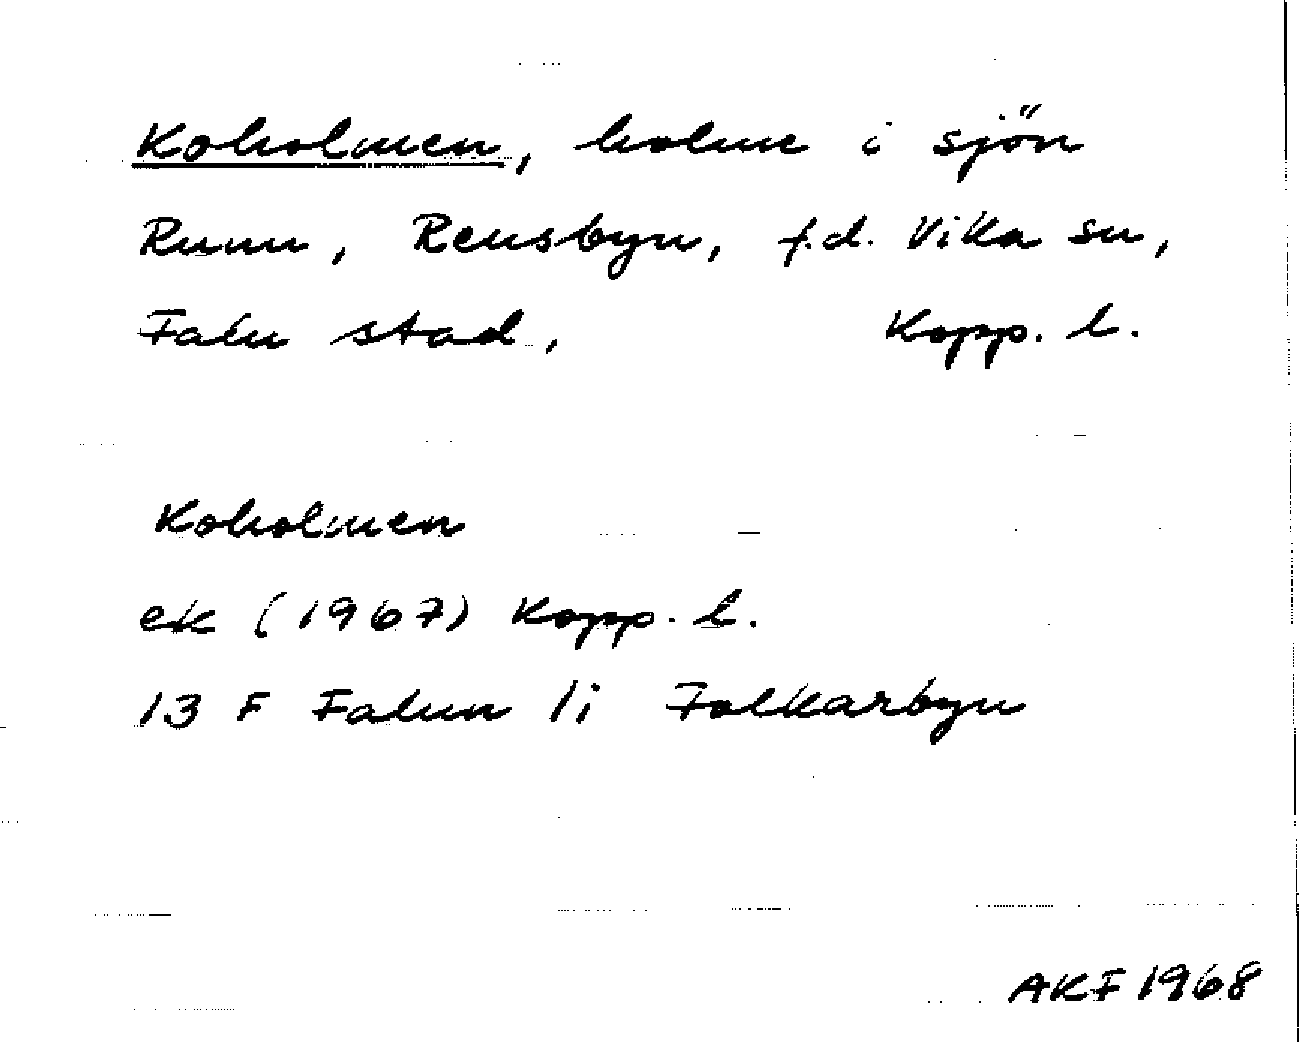 Koholmen, holme i sjön
Runn, Rensbyn, f.d. Vika sn,
Falu stad, Kopp. l.
Koholmen
ek (1967) Kopp. l.
13 F Falun 1i Folkarbyn
AKF 1968